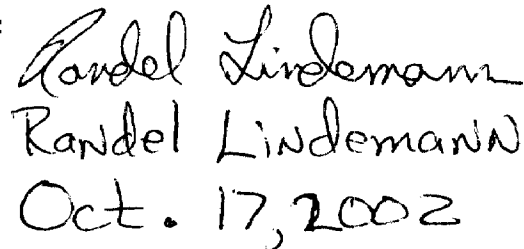 Randel Lindemann
Randel Lindemann
Oct. 17, 2002